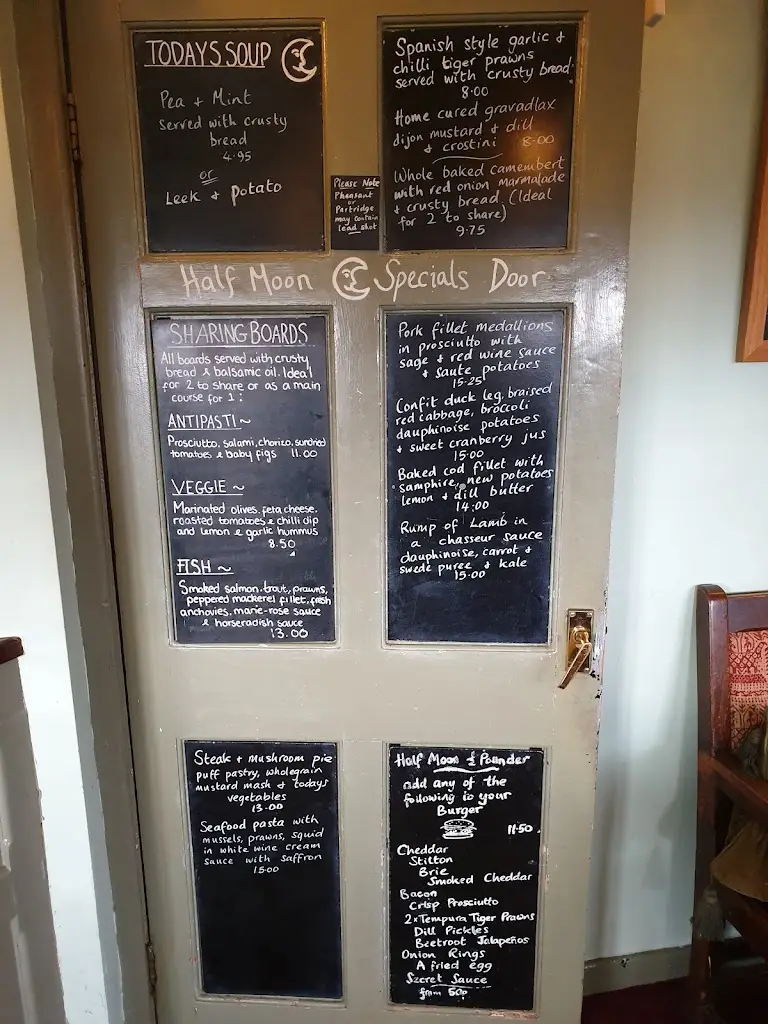 TODAYS SOUP
Pea + Mint
served with crusty
bread
4.95
or
Leek + Potato
Spanish style garlic +
chilli tiger prawns
served with crusty bread.
8.00
Home cured gravadlax
dijon mustard + dill
+ crostini 8.00
Whole baked camembert
with red onion marmalade
+ crusty bread. (Ideal
for 2 to share)
9.75
Please Note
Pheasant
or
Partridge
may contain
lead shot
Half Moon Specials Door
SHARING BOARDS
All boards served with crusty
bread & balsamic oil. Ideal
for 2 to share or as a main
course for 1:
ANTIPASTI~
Prosciutto, salami, chorizo, sundried
tomatoes & baby figs 11.00
VEGGIE~
Marinated olives, feta cheese,
roasted tomatoes & chilli dip
and lemon & garlic hummus
8.50
FISH~
Smoked salmon, trout, prawns,
peppered mackerel fillet, fresh
anchovies, marie-rose sauce
& horseradish sauce
13.00
Pork fillet medallions
in prosciutto with
sage + red wine sauce
+ saute potatoes
15.25
Confit duck leg, braised
red cabbage, broccoli
dauphinoise potatoes
+ sweet cranberry jus
15.00
Baked cod fillet with
samphire, new potatoes
lemon + dill butter
14.00
Rump of Lamb in
a chasseur sauce
dauphinoise, carrot +
swede puree + kale
15.00
Steak + mushroom pie
puff pastry, wholegrain
mustard mash + todays
vegetables
13.00
Seafood pasta with
mussels, prawns, squid
in white wine cream
sauce with saffron
15.00
Half Moon ½ Pounder
add any of the
following to your
Burger
11.50
Cheddar
Stilton
Brie
Smoked Cheddar
Bacon
Crisp Prosciutto
2x Tempura Tiger Prawns
Dill Pickles
Beetroot Jalapeños
Onion Rings
A fried egg
Secret Sauce
from 50p